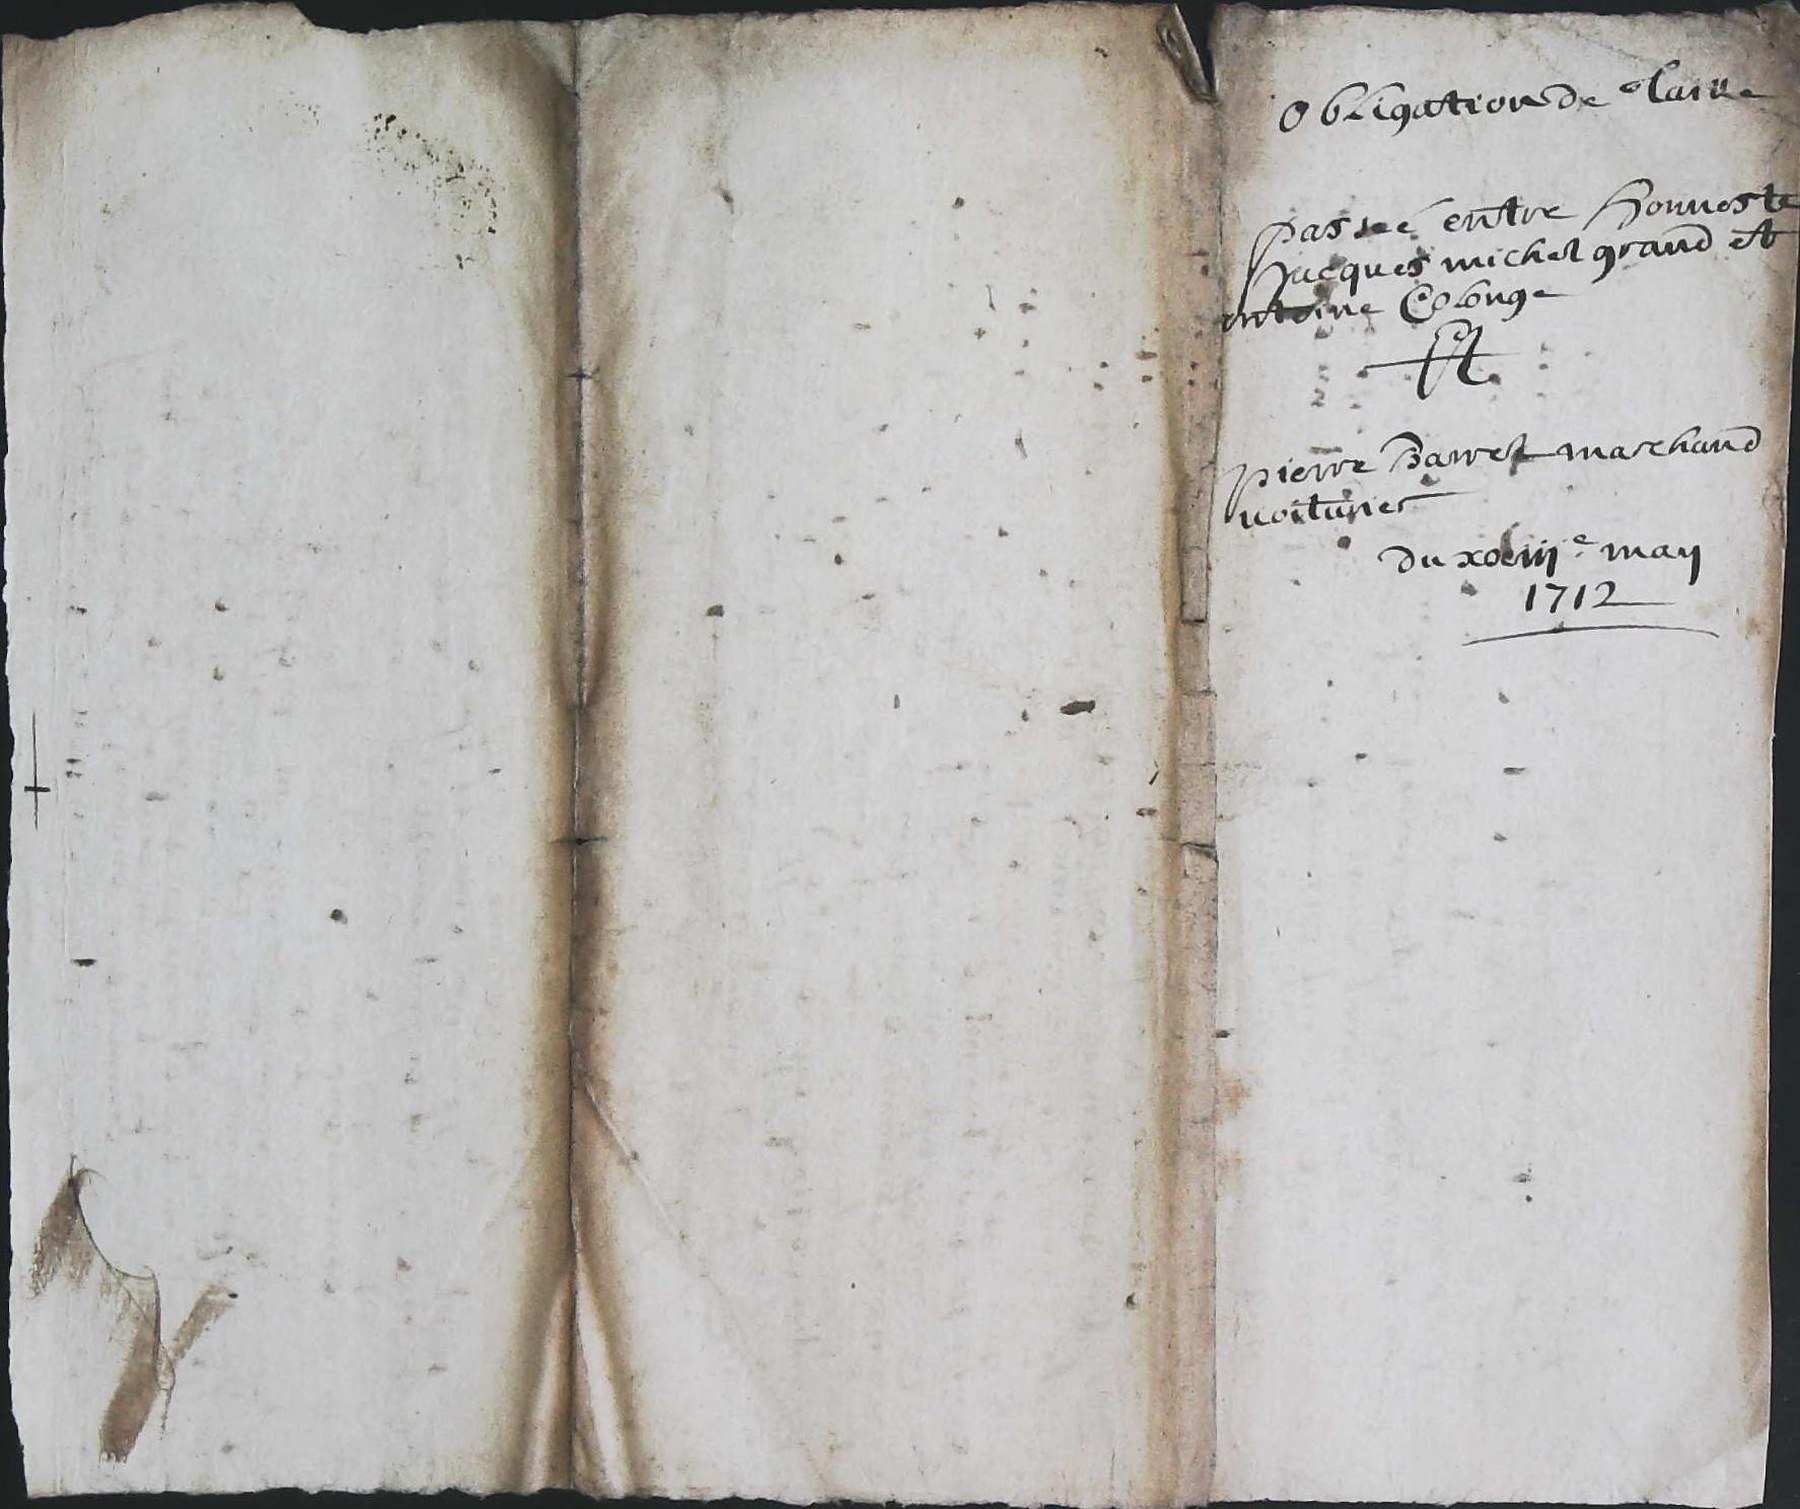 Obligation de laine
passée entre honneste
Jacques michel grand et
antoine Colonge
Et
pierre Barret marchand
voiturier
du xviije may
1712